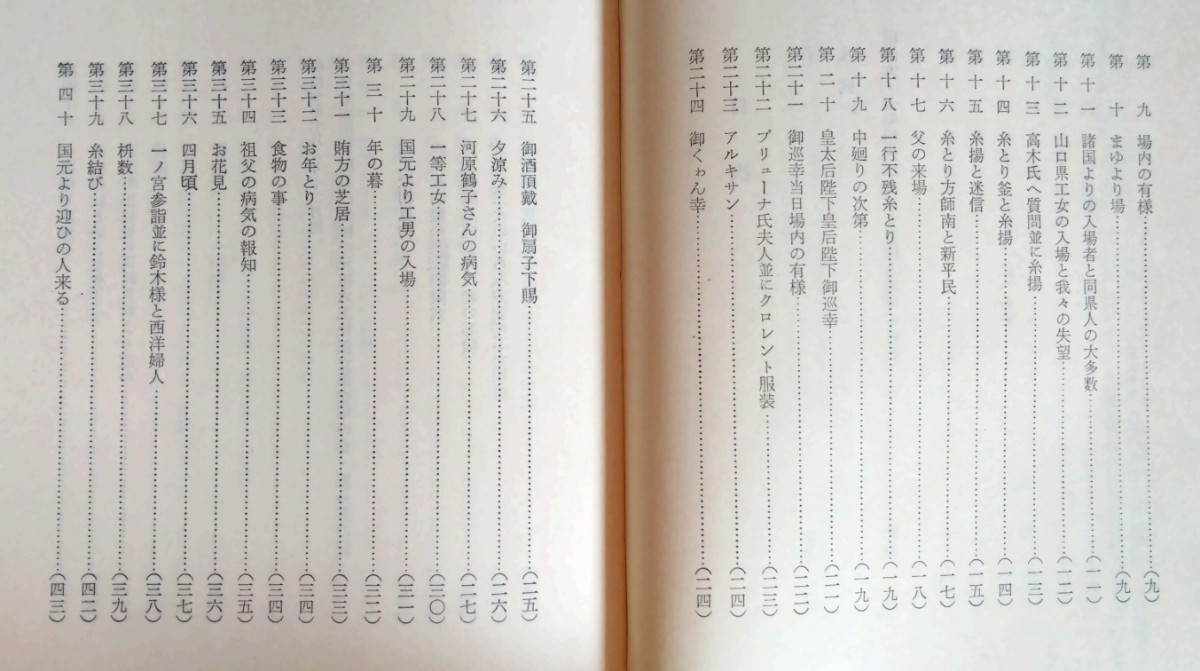 第九 場内の有様……(九)
第十 まゆより場……(九)
第十一 諸国よりの入場者と同県人の大多数……(一一)
第十二 山口県工女の入場と我々の失望……(一二)
第十三 高木氏へ質問並に糸揚……(一三)
第十四 糸とり釜と糸揚……(一四)
第十五 糸揚と迷信……(一五)
第十六 糸とり方師南と新平民……(一七)
第十七 父の来場……(一八)
第十八 一行不残糸とり……(一九)
第十九 中廻りの次第……(一九)
第二十 皇太后陛下皇后陛下御巡幸……(二一)
第二十一 御巡幸当日場内の有様……(二二)
第二十二 プリューナ氏夫人並にクロレント服装……(二三)
第二十三 アルキサン……(二四)
第二十四 御くゎん幸……(二四)
第二十五 御酒頂戴 御扇子下賜……(二五)
第二十六 夕涼み……(二六)
第二十七 河原鶴子さんの病気……(二七)
第二十八 一等工女……(三〇)
第二十九 国元より工男の入場……(三一)
第三十 年の暮……(三二)
第三十一 賄方の芝居……(三三)
第三十二 お年とり……(三四)
第三十三 食物の事……(三四)
第三十四 祖父の病気の報知……(三五)
第三十五 お花見……(三六)
第三十六 四月頃……(三七)
第三十七 一ノ宮参詣並に鈴木様と西洋婦人……(三八)
第三十八 枡数……(三九)
第三十九 糸結び……(四二)
第四十 国元より迎ひの人来る……(四三)